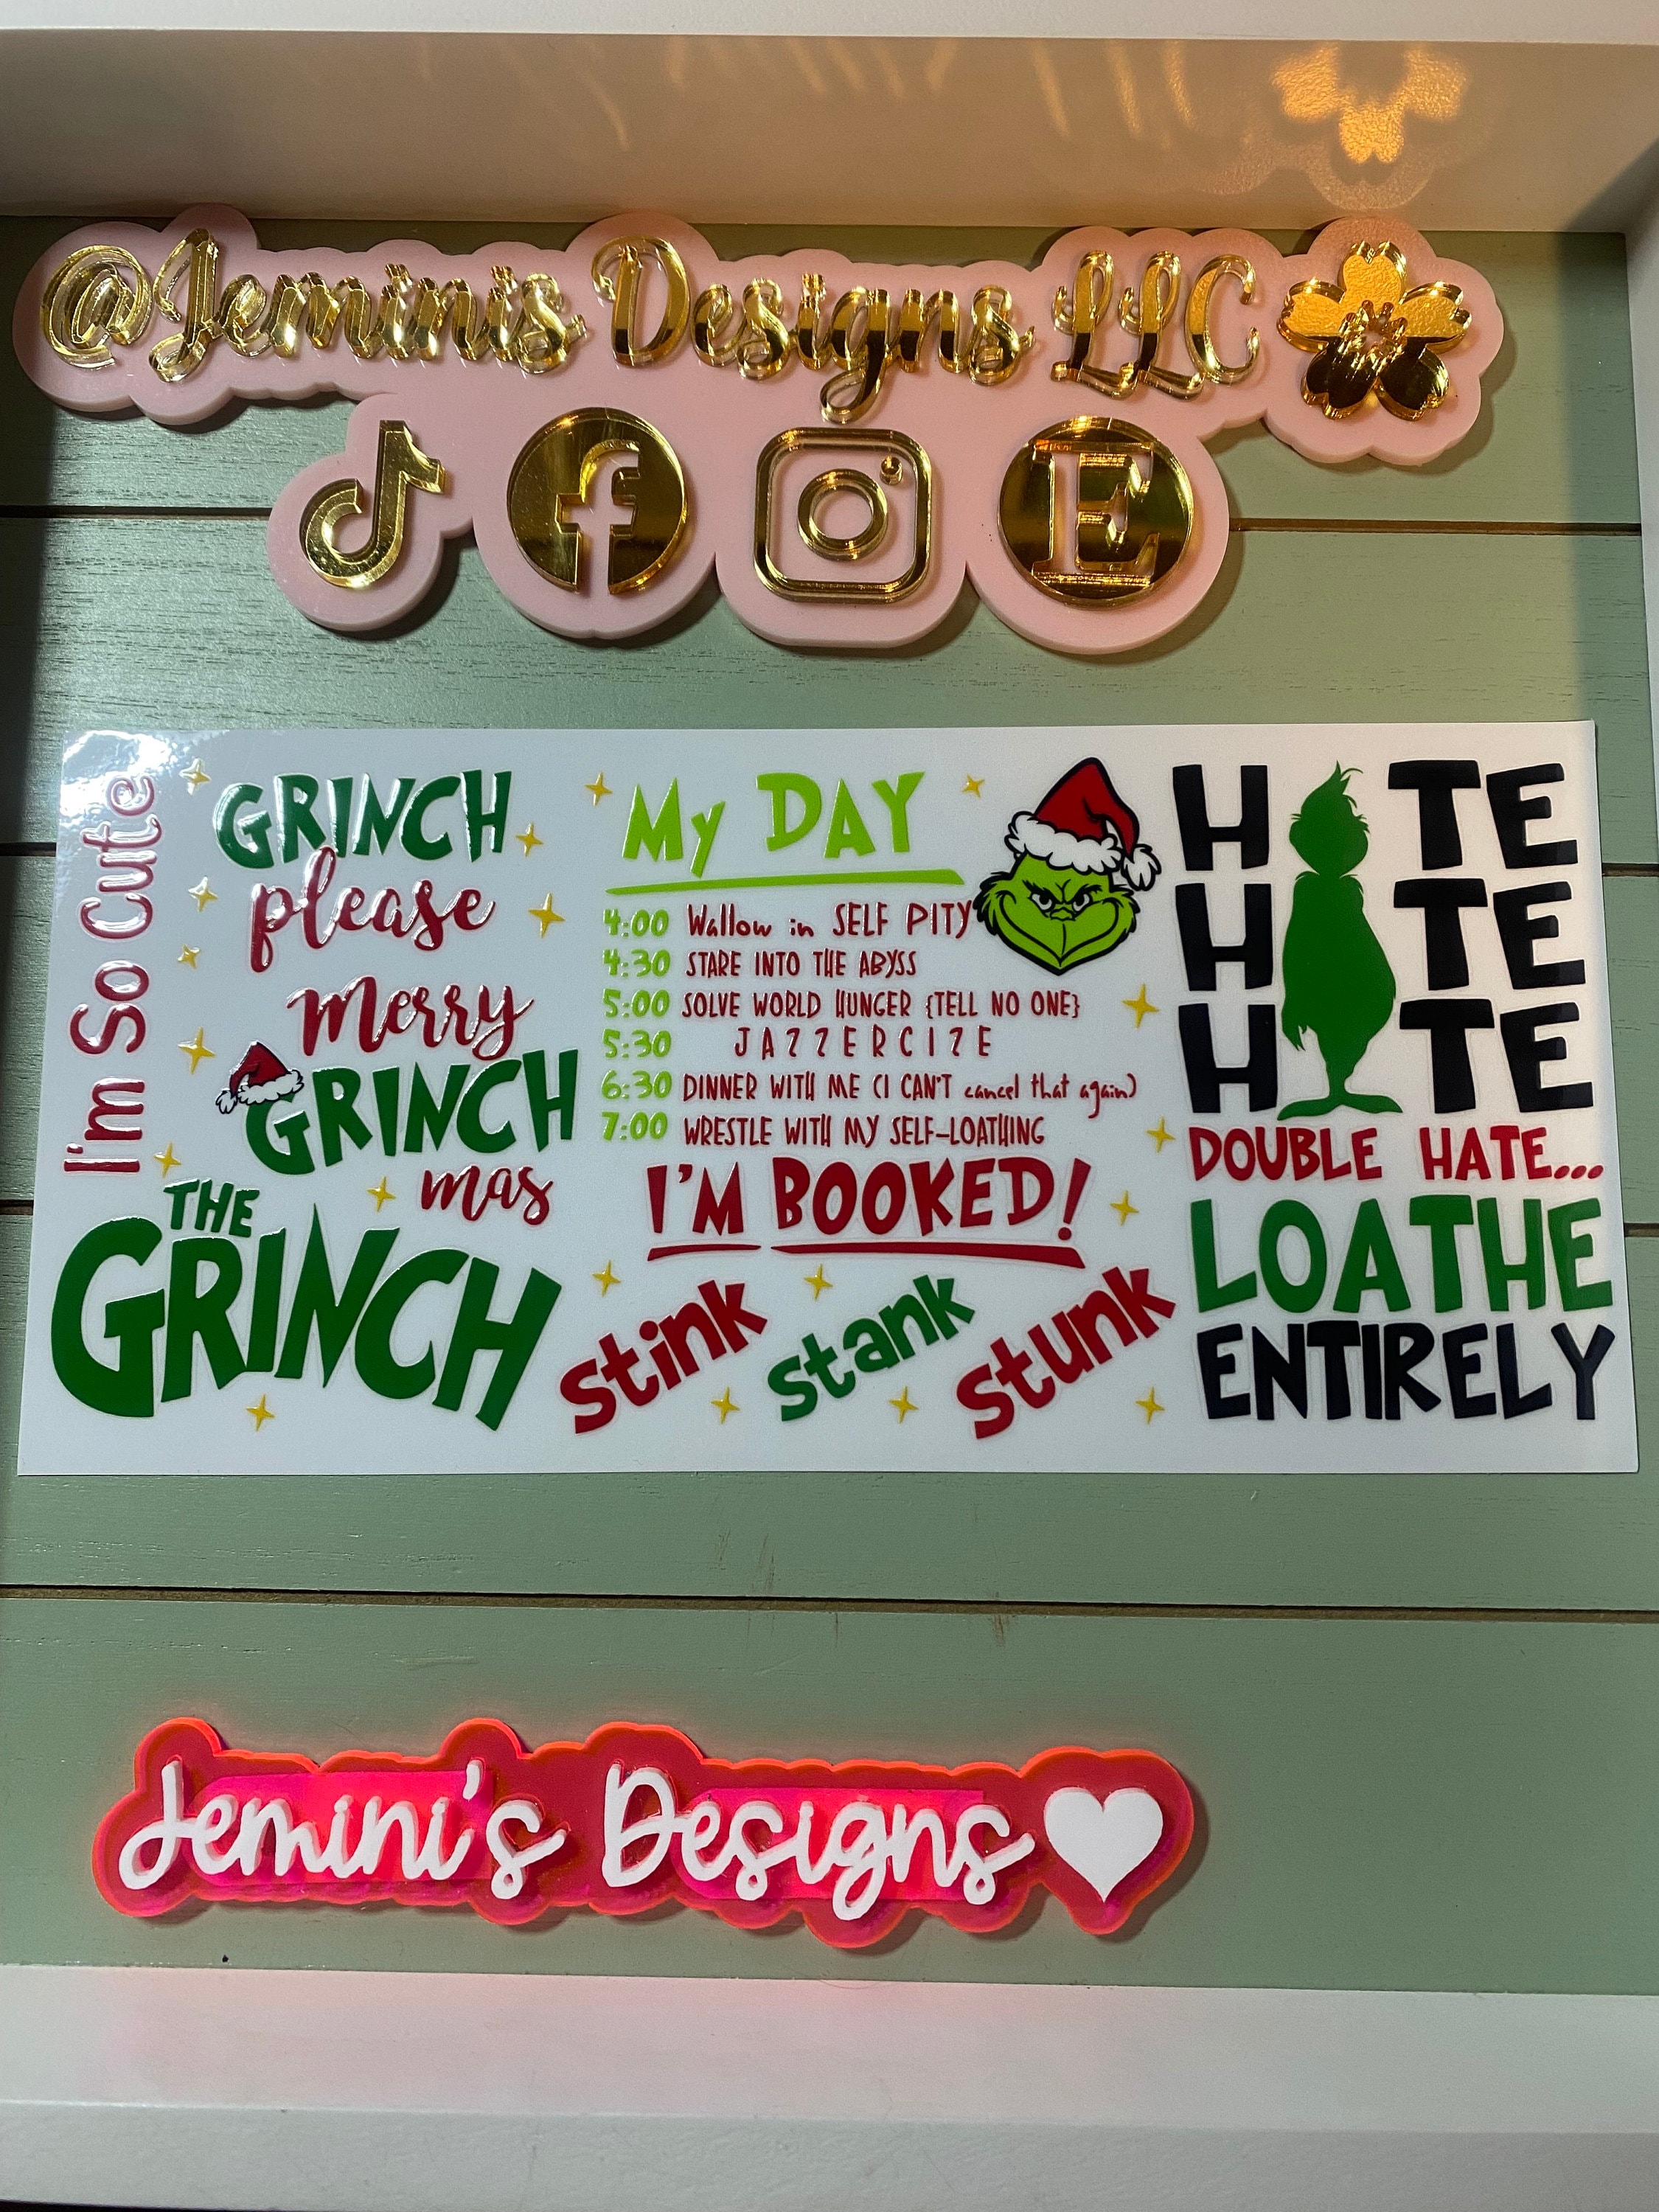 @Jeminis Designs LLC
f
E
I'm So Cute
GRINCH
please
merry
GRINCH
mas
THE
GRINCH
My DAY
4:00 Wallow in SELF PITY
4:30 STARE INTO THE ABYSS
5:00 SOLVE WORLD HUNGER {TELL NO ONE}
5:30 JAZZERCIZE
6:30 DINNER WITH ME (I CAN'T cancel that again)
7:00 WRESTLE WITH MY SELF-LOATHING
I'M BOOKED!
stink stank stunk
H TE
H TE
H TE
DOUBLE HATE...
LOATHE
ENTIRELY
Jemini's Designs